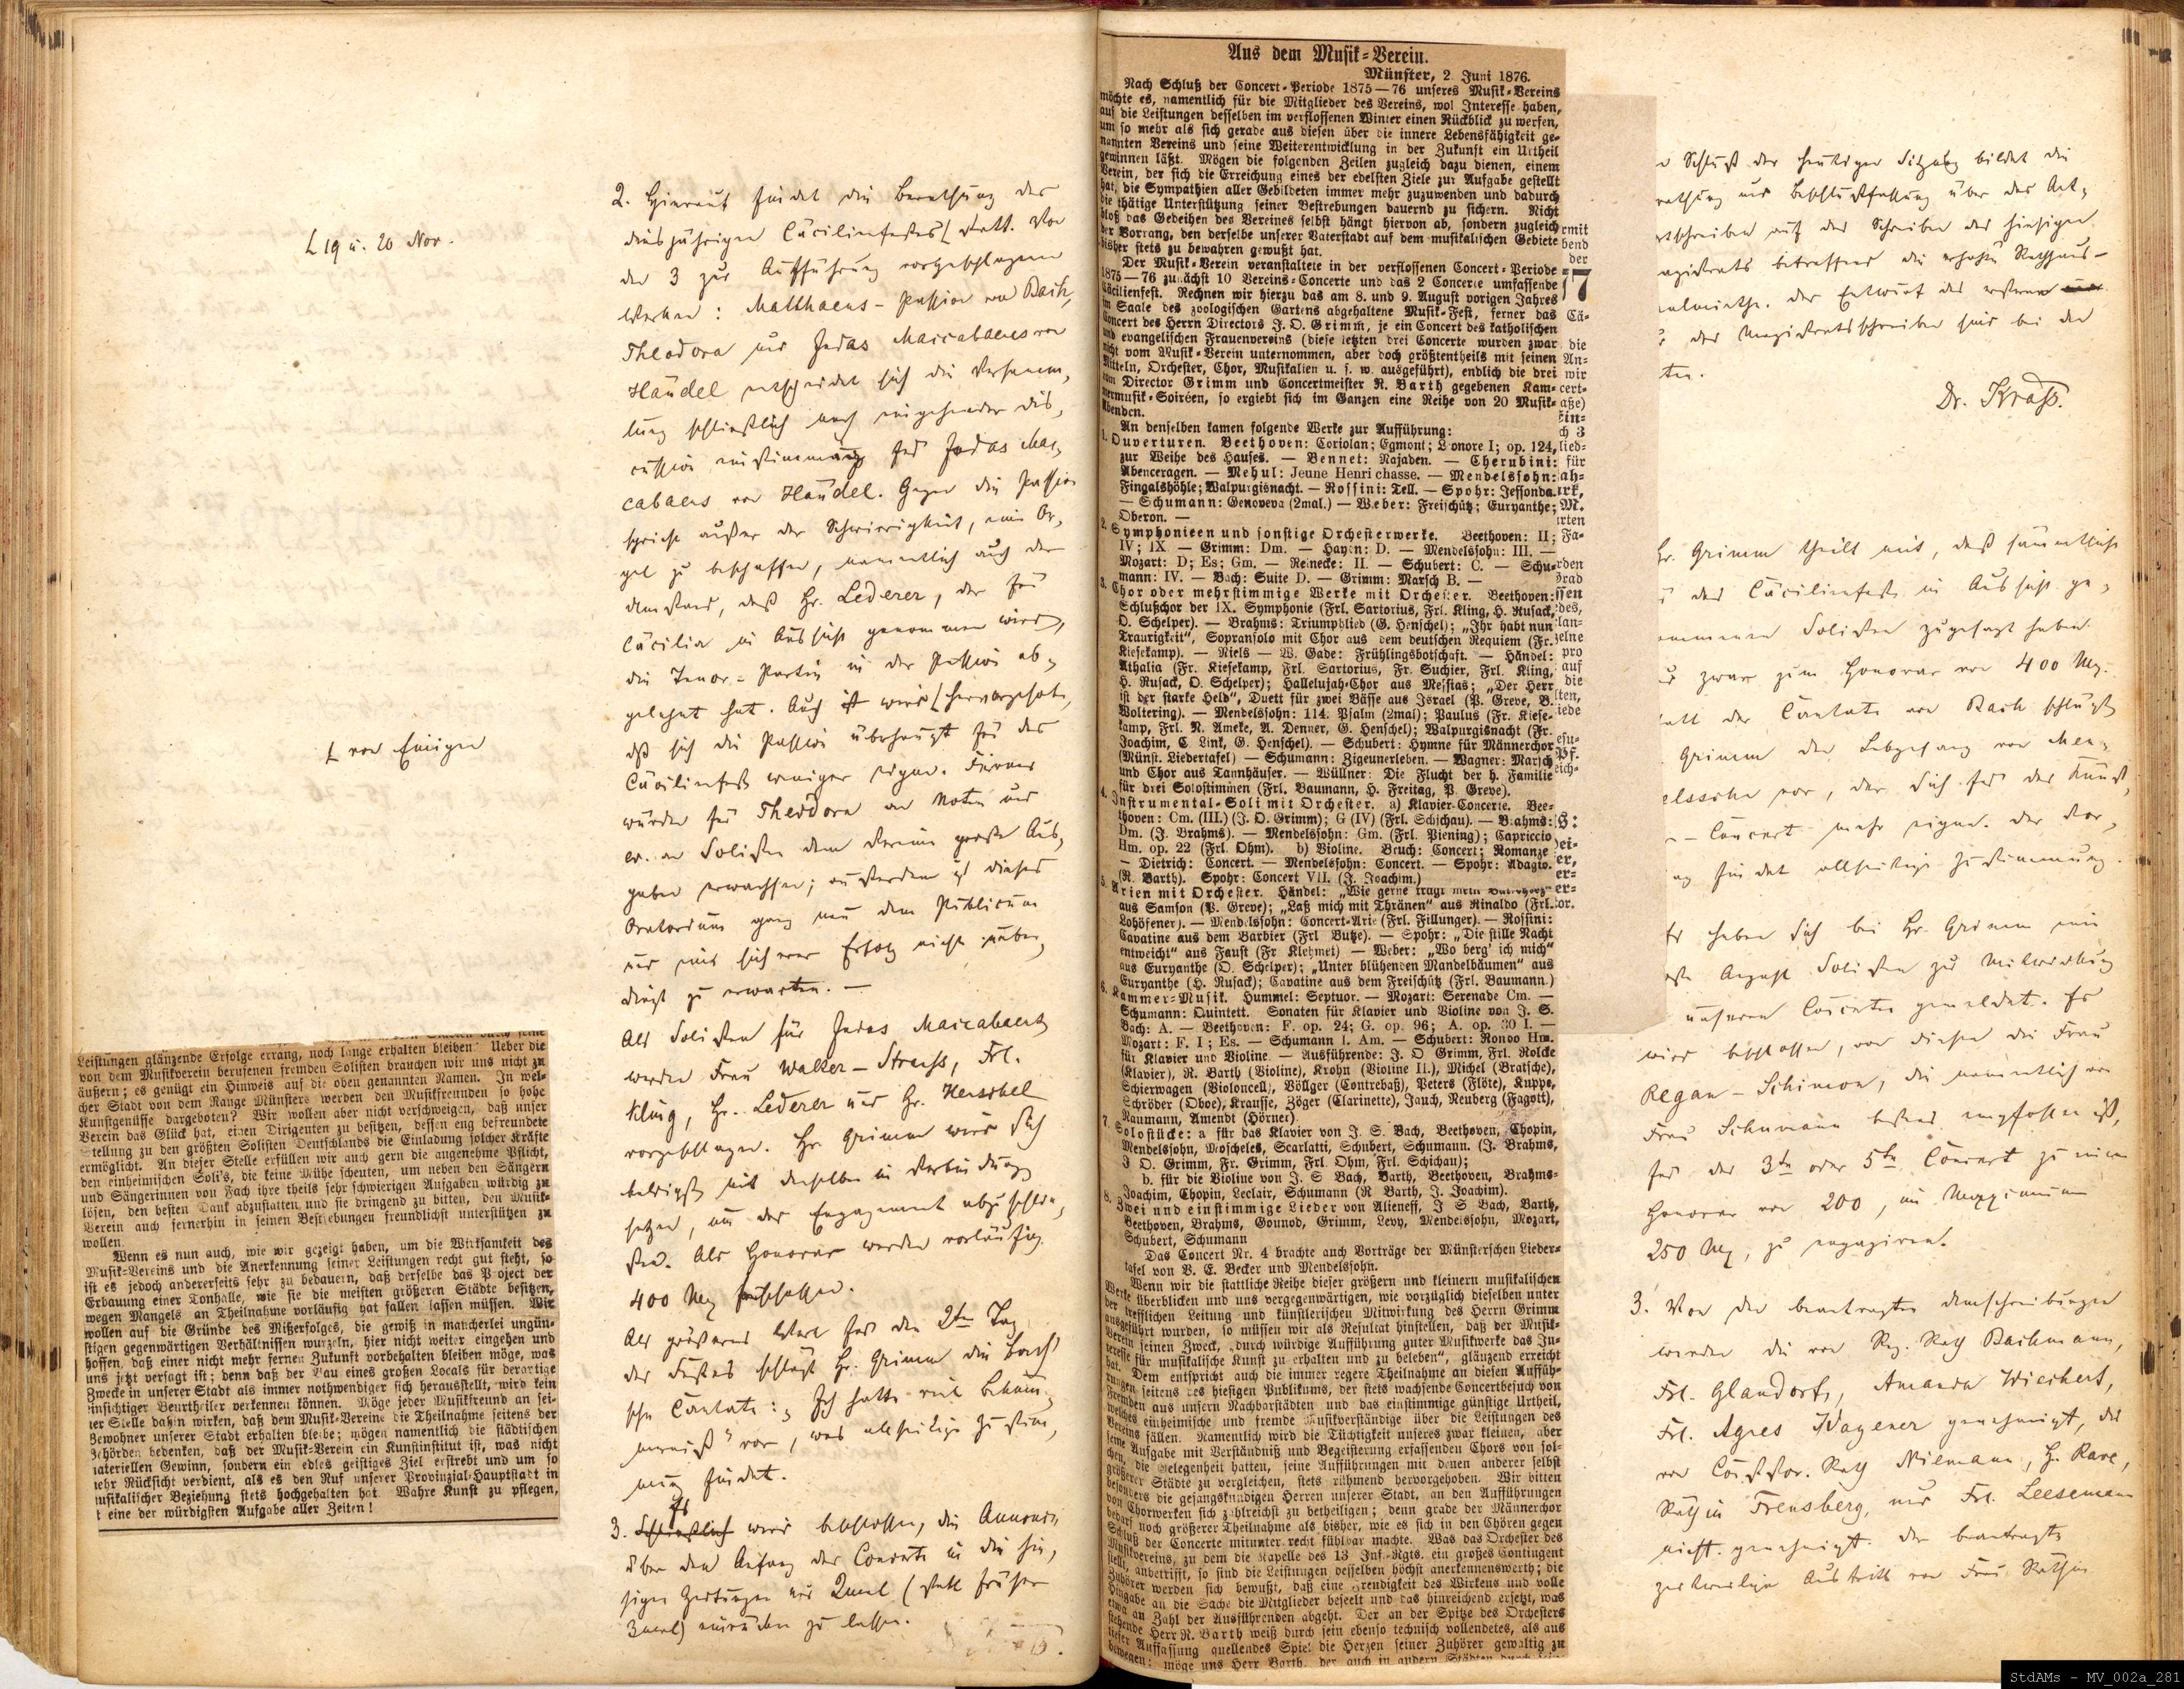 L 19 u. 20 Nov.
L von Einigen
Leistungen glänzende Erfolge errang, noch lange erhalten bleiben. Ueber die
von dem Musikverein berufenen fremden Solisten brauchen wir uns nicht zu
äußern; es genügt ein Hinweis auf die oben genannten Namen. In wel-
cher Stadt von dem Range Münsters werden den Musikfreunden so hohe
Kunstgenüsse dargeboten? Wir wollen aber nicht verschweigen, daß unser
Verein das Glück hat, einen Dirigenten zu besitzen, dessen eng befreundete
Stellung zu den größten Solisten Deutschlands die Einladung solcher Kräfte
ermöglicht. An dieser Stelle erfüllen wir auch gern die angenehme Pflicht,
den einheimischen Soli's, die keine Mühe scheuten, um neben den Sängern
und Sängerinnen von Fach ihre theils sehr schwierigen Aufgaben würdig zu
lösen, den besten Dank abzustatten und sie dringend zu bitten, den Musik-
Verein auch fernerhin in seinen Bestrebungen freundlichst unterstützen zu
wollen.
Wenn es nun auch, wie wir gezeigt haben, um die Wirksamkeit des
Musik-Vereins und die Anerkennung seiner Leistungen recht gut steht, so
ist es jedoch andererseits sehr zu bedauern, daß derselbe das Project der
Erbauung einer Tonhalle, wie sie die meisten größeren Städte besitzen,
wegen Mangels an Theilnahme vorläufig hat fallen lassen müssen. Wir
wollen auf die Gründe des Mißerfolges, die gewiß in mancherlei ungün-
stigen gegenwärtigen Verhältnissen wurzeln, hier nicht weiter eingehen und
hoffen, daß einer nicht mehr fernen Zukunft vorbehalten bleiben möge, was
uns jetzt versagt ist; denn daß der Bau eines großen Locals für derartige
Zwecke in unserer Stadt als immer nothwendiger sich herausstellt, wird kein
einsichtiger Beurtheiler verkennen können. Möge jeder Musikfreund an sei-
ner Stelle dahin wirken, daß dem Musik-Vereine die Theilnahme seitens der
Bewohner unserer Stadt erhalten bleibe; mögen namentlich die städtischen
Behörden bedenken, daß der Musik-Verein ein Kunstinstitut ist, was nicht
materiellen Gewinn, sondern ein edles geistiges Ziel erstrebt und um so
mehr Rücksicht verdient, als es den Ruf unserer Provinzial-Hauptstadt in
musikalischer Beziehung stets hochgehalten hat. Wahre Kunst zu pflegen,
t eine der würdigsten Aufgabe aller Zeiten!
2. Hierauf findet die Berathung des
diesjährigen Cäcilienfestes L statt. Von
den 3 zur Aufführung vorgeschlagenen
Werken: Matthaeus-Passion von Bach,
Theodora und Judas Maccabaeus von
Händel entscheidet sich die Versamm-
lung schließlich nach eingehender Dis-
cussion einstimmig für Judas Mac-
cabaeus von Händel. Gegen die Passion
spricht außer der Schwierigkeit, eine Or-
gel zu beschaffen, namentlich auch der
Umstand, daß Hr. Lederer, der für
Cäcilia in Aussicht genommen wird,
die Tenor-Partie in der Passion ab-
gelehnt hat. Auch wird L hervorgehoben,
daß sich die Passion überhaupt für das
Cäcilienfest weniger eigne. Ferner
würden für Theodora an Noten und
ev. an Solisten dem Vereine große Aus-
gaben erwachsen; außerdem ist dieses
Oratorium ganz neu dem Publicum
und ein sicherer Erfolg nicht unbe-
dingt zu erwarten. —
Als Solisten für Judas Maccabaeus
werden Frau Walter-Strauss, Frl.
Kling, Hr. Lederer und Hr. Henschel
vorgeschlagen. Hr. Grimm wird sich
baldigst mit denselben in Verbindung
setzen, um das Engagement abzuschlie-
ßen. Als Honorar werden vorläufig
400 Mk festgesetzt.
Als größeres Werk für den 2ten Tag
des Festes schlägt Hr. Grimm die Bach'
sche Cantate: „Ich hatte viel Beküm-
merniß" vor, was allseitige Zustim-
mung findet.
3. Es wird beschlossen, die Annonce
über den Anfang der Concerte in die hie-
sigen Zeitungen nur 2mal (statt früher
3mal) einrücken zu lassen.
Aus dem Musik-Verein.
Münster, 2. Juni 1876.
Nach Schluß der Concert-Periode 1875—76 unseres Musik-Vereins
möchte es, namentlich für die Mitglieder des Vereins, wol Interesse haben,
auf die Leistungen desselben im verflossenen Winter einen Rückblick zu werfen,
um so mehr als sich gerade aus diesen über die innere Lebensfähigkeit ge-
nannten Vereins und seine Weiterentwicklung in der Zukunft ein Urtheil
gewinnen läßt. Mögen die folgenden Zeilen zugleich dazu dienen, einem
Verein, der sich die Erreichung eines der edelsten Ziele zur Aufgabe gestellt
hat, die Sympathien aller Gebildeten immer mehr zuzuwenden und dadurch
die thätige Unterstützung seiner Bestrebungen dauernd zu sichern. Nicht
bloß das Gedeihen des Vereines selbst hängt hiervon ab, sondern zugleich
der Vorrang, den derselbe unserer Vaterstadt auf dem musikalischen Gebiete
bisher stets zu bewahren gewußt hat.
Der Musik-Verein veranstaltete in der verflossenen Concert-Periode
1875—76 zunächst 10 Vereins-Concerte und das 2 Concerte umfassende
Cäcilienfest. Rechnen wir hierzu das am 8. und 9. August vorigen Jahres
im Saale des zoologischen Gartens abgehaltene Musik-Fest, ferner das
Concert des Herrn Directors J. O. Grimm, je ein Concert des katholischen
und evangelischen Frauenvereins (diese letzten drei Concerte wurden zwar
nicht vom Musik-Verein unternommen, aber doch größtentheils mit seinen
Mitteln, Orchester, Chor, Musikalien u. s. w. ausgeführt), endlich die drei
vom Director Grimm und Concertmeister R. Barth gegebenen Kam-
mermusik-Soiréen, so ergiebt sich im Ganzen eine Reihe von 20 Musik-
Abenden.
An denselben kamen folgende Werke zur Aufführung:
1. Ouverturen. Beethoven: Coriolan; Egmont; Leonore I; op. 124,
zur Weihe des Hauses. — Bennet: Najaden. — Cherubini:
Abenceragen. — Mehul: Jeune Henri chasse. — Mendelssohn:
Fingalshöhle; Walpurgisnacht. — Rossini: Tell. — Spohr: Jessonda.
— Schumann: Genoveva (2mal.) — Weber: Freischütz; Euryanthe;
Oberon. —
2. Symphonieen und sonstige Orchesterwerke. Beethoven: II;
IV; IX. — Grimm: Dm. — Haydn: D. — Mendelssohn: III. —
Mozart: D; Es; Gm. — Reinecke: II. — Schubert: C. — Schu-
mann: IV. — Bach: Suite D. — Grimm: Marsch B. —
3. Chor oder mehrstimmige Werke mit Orchester. Beethoven:
Schlußchor der IX. Symphonie (Frl. Sartorius, Frl. Kling, H. Rusack,
O. Schelper). — Brahms: Triumphlied (G. Henschel); „Ihr habt nun
Traurigkeit", Sopransolo mit Chor aus dem deutschen Requiem (Fr.
Kiesekamp). — Niels — W. Gade: Frühlingsbotschaft. — Händel:
Athalia (Fr. Kiesekamp, Frl. Sartorius, Fr. Suchier, Frl. Kling,
H. Rusack, O. Schelper); Hallelujah-Chor aus Messias; „Der Herr
ist der starke Held", Duett für zwei Bässe aus Israel (P. Greve, B.
Woltering). — Mendelssohn: 114. Psalm (2mal); Paulus (Fr. Kiese-
kamp, Frl. N. Ameke, A. Denner, G. Henschel); Walpurgisnacht (Fr.
Joachim, C. Link, G. Henschel). — Schubert: Hymne für Männerchor
(Münst. Liedertafel) — Schumann: Zigeunerleben. — Wagner: Marsch
und Chor aus Tannhäuser. — Wüllner: Die Flucht der h. Familie
für drei Solostimmen (Frl. Baumann, H. Freitag, P. Greve).
4. Instrumental-Soli mit Orchester. a) Klavier-Concerte. Bee-
thoven: Cm. (III.) (J. O. Grimm); G (IV) (Frl. Schichau). — Brahms:
Dm. (J. Brahms). — Mendelssohn: Gm. (Frl. Piening); Capriccio
Hm. op. 22 (Frl. Ohm). b) Violine. Bruch: Concert; Romanze
— Dietrich: Concert. — Mendelssohn: Concert. — Spohr: Adagio.
(R. Barth). Spohr: Concert VII. (J. Joachim.)
5. Arien mit Orchester. Händel: „Wie gerne trägt mein
aus Samson (P. Greve); „Laß mich mit Thränen" aus Rinaldo (Frl.
Lohöfener). — Mendelssohn: Concert-Arie (Frl. Fillunger). — Rossini:
Cavatine aus dem Barbier (Frl Butze). — Spohr: „Die stille Nacht
entweicht" aus Faust (Fr Klehmet) — Weber: „Wo berg' ich mich"
aus Euryanthe (O. Schelper); „Unter blühenden Mandelbäumen" aus
Euryanthe (H. Rusack); Cavatine aus dem Freischütz (Frl. Baumann.)
6. Kammer-Musik. Hummel: Septuor. — Mozart: Serenade Cm. —
Schumann: Quintett. Sonaten für Klavier und Violine von J. S.
Bach: A. — Beethoven: F. op. 24; G. op. 96; A. op. 30 I. —
Mozart: F. I; Es. — Schumann I. Am. — Schubert: Rondo Hm.
für Klavier und Violine. — Ausführende: J. O Grimm, Frl. Rolcke
(Klavier), R. Barth (Violine), Krohn (Violine II.), Michel (Bratsche),
Schierwagen (Violoncell), Völlger (Contrebaß), Peters (Flöte), Kuppe,
Schröder (Oboe), Krausse, Zöger (Clarinette), Jauch, Neuberg (Fagott),
Naumann, Amendt (Hörner).
7. Solostücke: a für das Klavier von J. S. Bach, Beethoven, Chopin,
Mendelssohn, Moscheles, Scarlatti, Schubert, Schumann. (J. Brahms,
J O. Grimm, Fr. Grimm, Frl. Ohm, Frl. Schichau);
b. für die Violine von J. S Bach, Barth, Beethoven, Brahms-
Joachim, Chopin, Leclair, Schumann (R Barth, J. Joachim).
8. Zwei und einstimmige Lieder von Alieneff, J S Bach, Barth,
Beethoven, Brahms, Gounod, Grimm, Levy, Mendelssohn, Mozart,
Schubert, Schumann
Das Concert Nr. 4 brachte auch Vorträge der Münsterschen Lieder-
tafel von V. E. Becker und Mendelssohn.
Wenn wir die stattliche Reihe dieser größern und kleinern musikalischen
Werke überblicken und uns vergegenwärtigen, wie vorzüglich dieselben unter
der trefflichen Leitung und künstlerischen Mitwirkung des Herrn Grimm
ausgeführt wurden, so müssen wir als Resultat hinstellen, daß der Musik-
Verein seinen Zweck, „durch würdige Aufführung guter Musikwerke das In-
teresse für musikalische Kunst zu erhalten und zu beleben", glänzend erreicht
hat. Dem entspricht auch die immer regere Theilnahme an diesen Auffüh-
rungen seitens des hiesigen Publikums, der stets wachsende Concertbesuch von
Fremden aus unsern Nachbarstädten und das einstimmige günstige Urtheil,
welches einheimische und fremde Musikverständige über die Leistungen des
Vereins fällen. Namentlich wird die Tüchtigkeit unseres zwar kleinen, aber
seine Aufgabe mit Verständniß und Begeisterung erfassenden Chors von sol-
chen, die Gelegenheit hatten, seine Aufführungen mit denen anderer selbst
größerer Städte zu vergleichen, stets rühmend hervorgehoben. Wir bitten
besonders die gesangskundigen Herren unserer Stadt, an den Aufführungen
von Chorwerken sich zahlreichst zu betheiligen; denn grade der Männerchor
bedarf noch größerer Theilnahme als bisher, wie es sich in den Chören gegen
Schluß der Concerte mitunter recht fühlbar machte. Was das Orchester des
Musikvereins, zu dem die Kapelle des 13 Inf.-Rgts. ein großes Contingent
stellt, anbetrifft, so sind die Leistungen desselben höchst anerkennenswerth; die
Zuhörer werden sich bewußt, daß eine Freudigkeit des Wirkens und volle
Hingabe an die Sache die Mitglieder beseelt und das hinreichend ersetzt, was
etwa an Zahl der Ausführenden abgeht. Der an der Spitze des Orchesters
stehende Herr R. Barth weiß durch sein ebenso technisch vollendetes, als aus
tiefer Auffassung quellendes Spiel die Herzen seiner Zuhörer gewaltig zu
bewegen; möge uns Herr Barth, der auch in andern Städten durch
n Schluß der heutigen Sitzung bildet die
rathung und Beschlußfassung über das Ant-
wortschreiben auf das Schreiben des hiesigen
agistrats betreffend die erhöhte Rathhaus-
aalmiethe. Der Entwurf des ersteren
der Magistratsschreiben sind bei den
ten.
Dr. Krass.
Hr. Grimm theilt mit, daß sämmtliche
das Cäcilienfest in Aussicht ge-
ommenen Solisten zugesagt haben
und zwar zum Honorar von 400 Mk.
tatt der Cantate von Bach schlägt
Grimm den Lobgesang von Men-
elssohn vor, der sich für das Künst-
- Concert mehr eigne. Der Vor-
ag findet allseitige Zustimmung.
Es haben sich bei Hr. Grimm eine
Anzahl Solisten zur Mitwirkung
unseren Concerten gemeldet. Es
wird beschlossen, von diesen die Frau
Regan-Schimon, die namentlich von
Frau Schumann bestens empfohlen ist,
für das 3te oder 5te Concert zu einem
Honorar von 200, im Maximum
250 Mk, zu engagiren.
3. Von den beantragten Umschreibungen
werden die von Reg. Rath Bachmann,
Frl. Glandorf, Amanda Wiechert,
Frl. Agnes Wagener genehmigt, die
von Consistor. Rath Niemann, H. Rave,
Räthin Frensberg, und Frl. Leesemann
nicht genehmigt. Der beantragte
zeitweilige Austritt von Frau Räthin
StdAMs - MV_002a_281